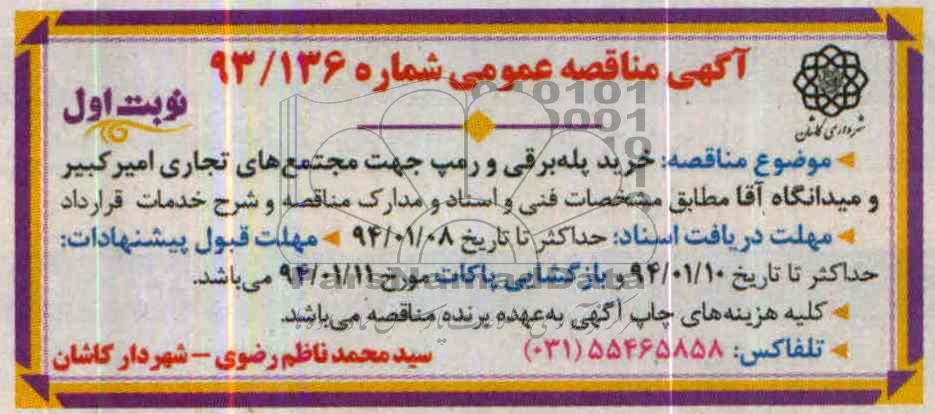 آگهی مناقصه عمومی شماره ۹۳/۱۳۶
نوبت اول
شهرداری کاشان
موضوع مناقصه: خرید پله‌برقی و رمپ جهت مجتمع‌های تجاری امیرکبیر
و میدانگاه آقا مطابق مشخصات فنی و اسناد و مدارک مناقصه و شرح خدمات قرارداد
مهلت دریافت اسناد: حداکثر تا تاریخ ۹۴/۰۱/۰۸ مهلت قبول پیشنهادات:
حداکثر تا تاریخ ۹۴/۰۱/۱۰ و بازگشایی پاکات مورخ ۹۴/۰۱/۱۱ می‌باشد.
کلیه هزینه‌های چاپ آگهی به‌عهده برنده مناقصه می‌باشد.
تلفاکس: ۵۵۴۶۵۸۵۸ (۰۳۱)
سیدمحمد ناظم رضوی – شهردار کاشان